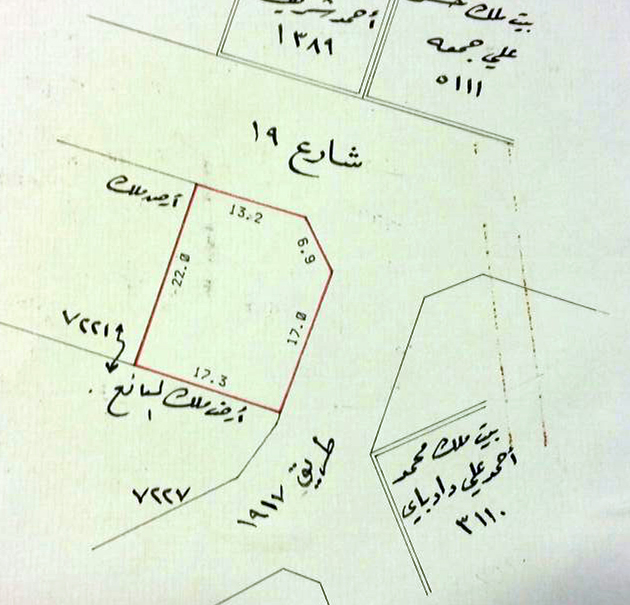 أحمد شريف
١٣٨٩
بيت ملك
علي جمعه
٥١١١
شارع ١٩
أرض ملك
13.2
6.9
22.0
17.0
17.3
٧٢٢١
أرض ملك البائع
٧٢٢٧
طريق ١٩١٧
بيت ملك محمد
أحمد علي دادباي
٣١١٠